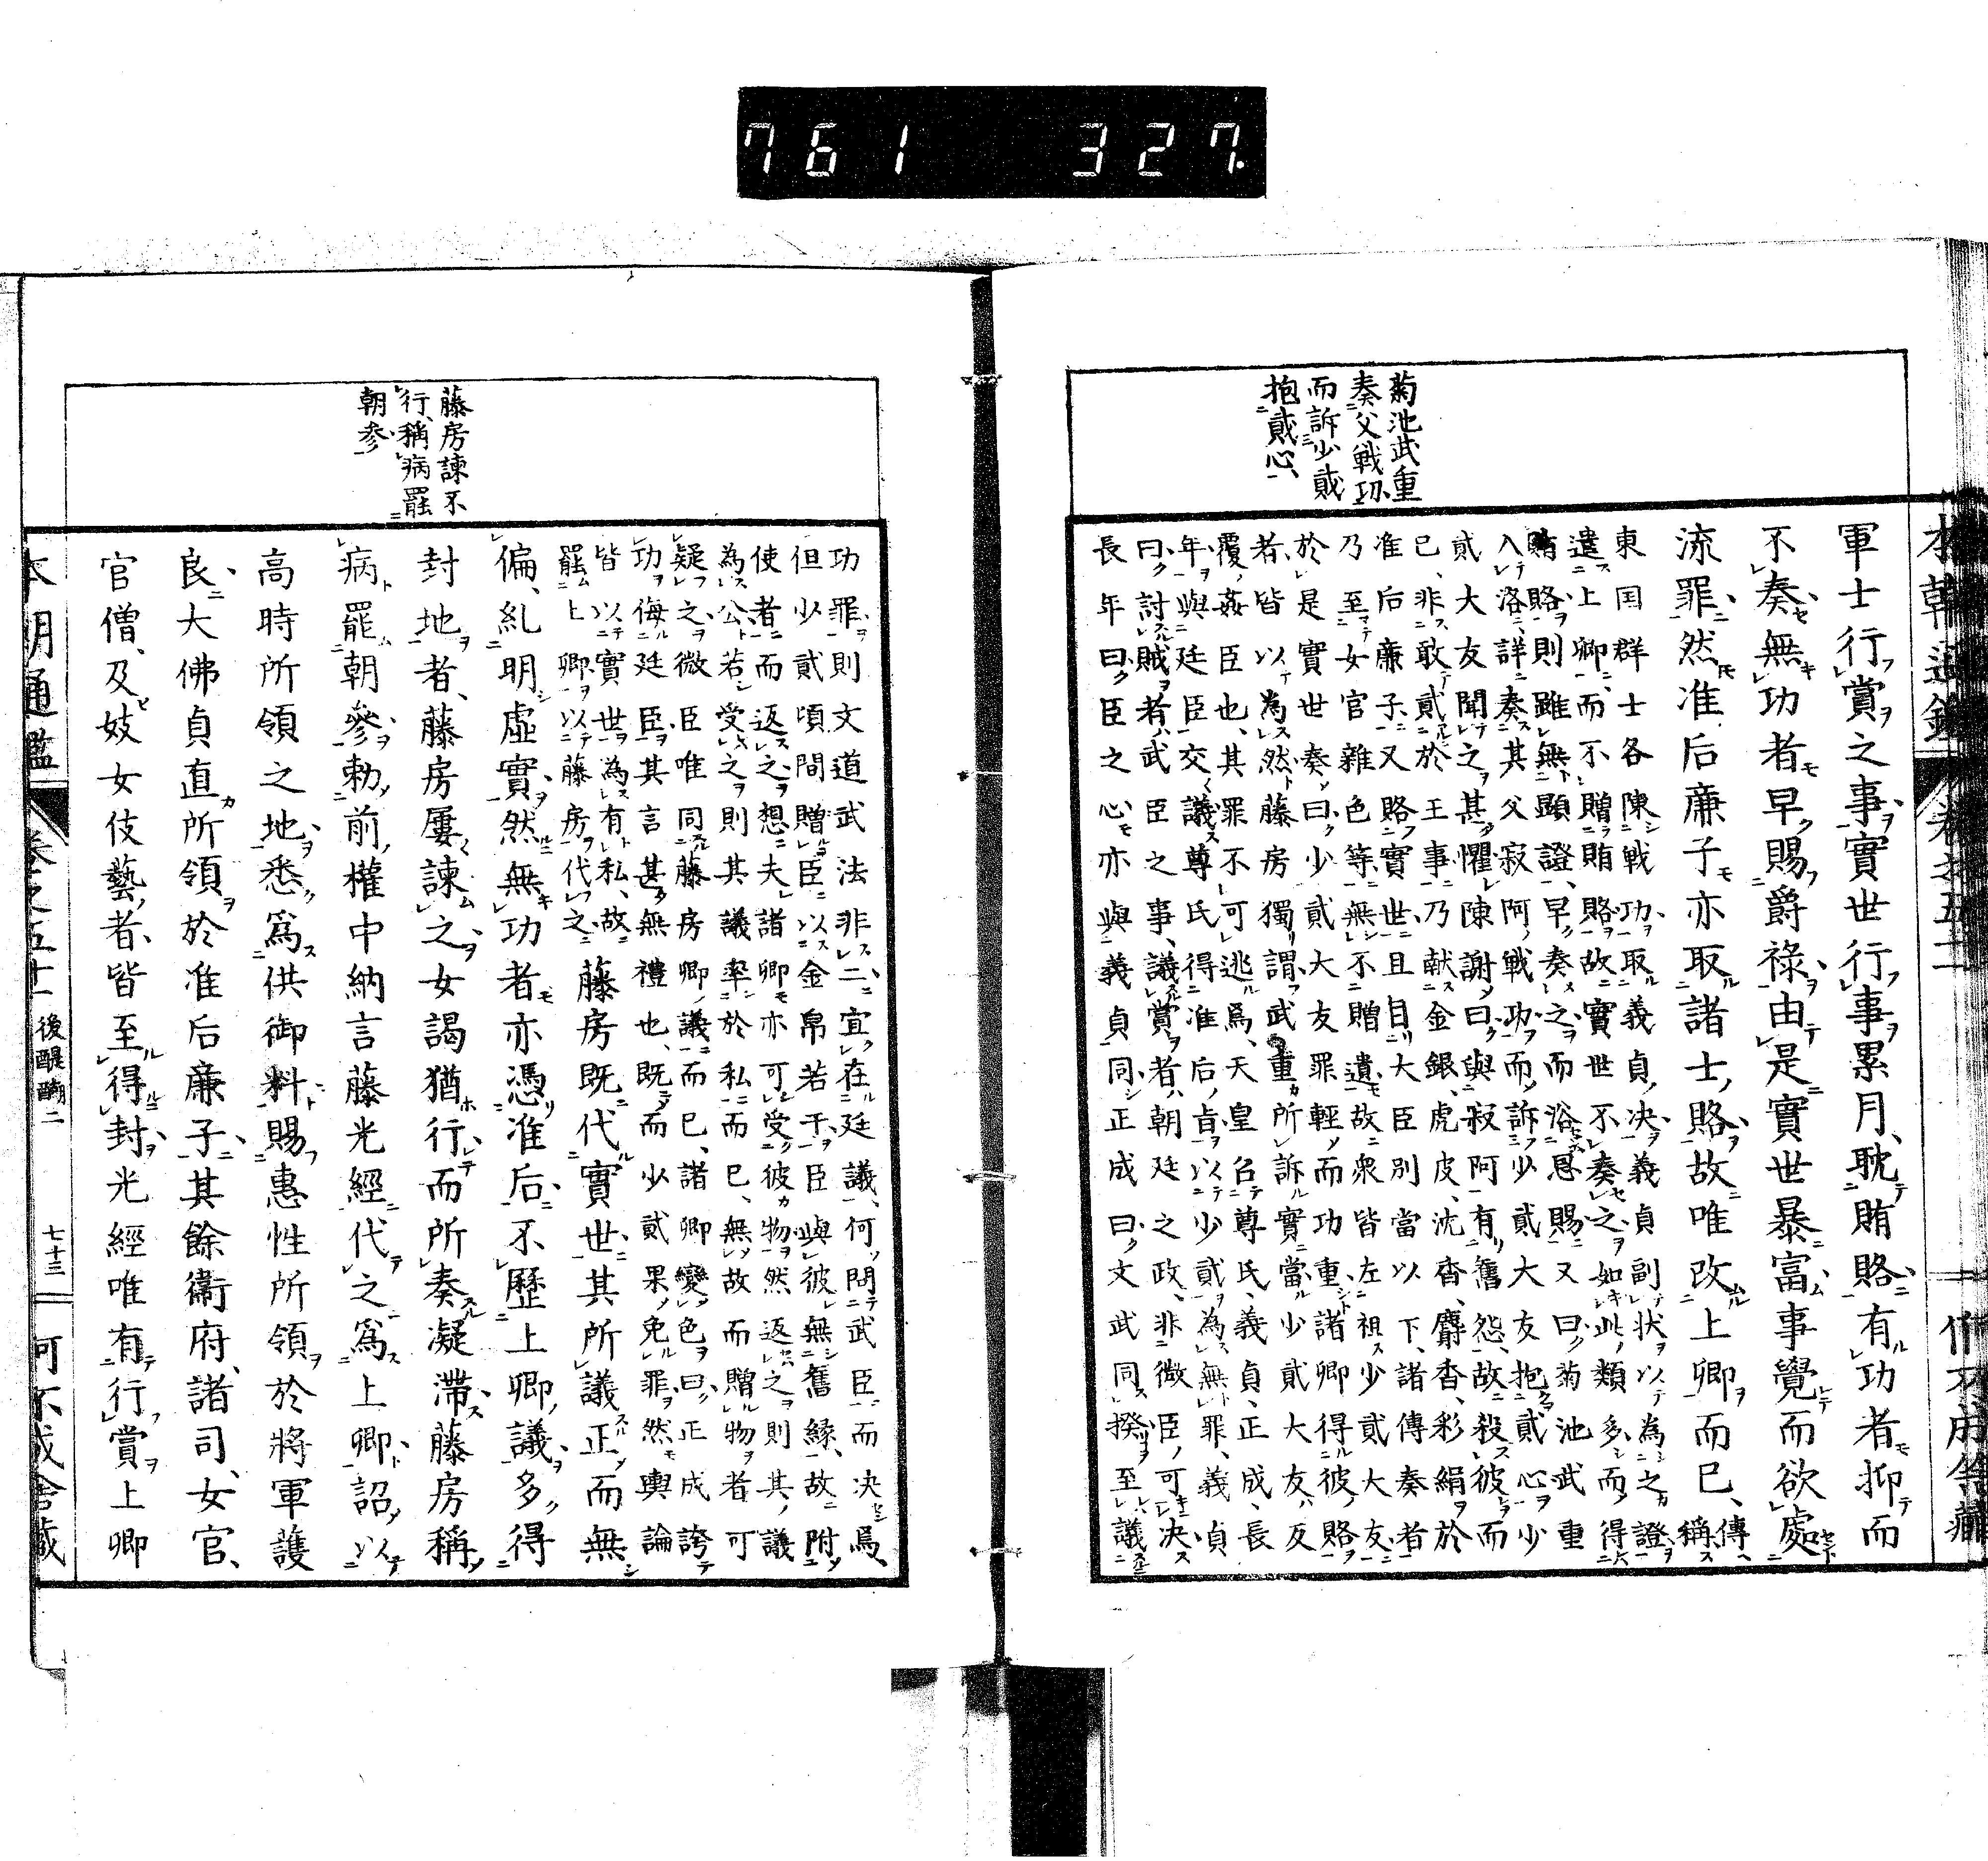 761 327.
菊池武重
奏父戰功
而訴少貳
抱貳心
軍士行賞之事實世行事累月耽賄賂有功者抑而
不奏無功者早賜爵祿由是實世暴富事覺而欲處
流罪然准后廉子亦取諸士賂故唯改上卿而已傳稱
東国群士各陳戰功取義貞决義貞副状以為之證
遣上卿而不贈賄賂故實世不奏之如此類多而得
賄賂則雖無顯證早奏之而浴恩賜又曰菊池武重
入洛詳奏其父寂阿戰功而訴少貳大友抱貳心少
貳大友聞之甚懼陳謝曰與寂阿有舊怨故殺彼而
已非敢貳於王事乃献金銀虎皮沈香麝香彩絹於
准后廉子又賂實世且自大臣別當以下諸傳奏者
乃至女官雜色等無不贈遺故衆皆左祖少貳大友
於是實世奏曰少貳大友罪輕而功重諸卿得彼賂
者皆以為然藤房獨謂武重所訴實當少貳大友反
覆姦臣也其罪不可逃焉天皇召尊氏義貞正成長
年與廷臣交議尊氏得准后旨以少貳為無罪義貞
曰討賊者武臣之事議賞者朝廷之政非微臣可决
長年曰臣之心亦與義貞同正成曰文武同揆至議
藤房諫不
行稱病罷
朝参
功罪則文道武法非二宜在廷議何問武臣而决焉
但少貳頃間贈臣以金帛若干臣與彼無舊縁故附
使者而返之想夫諸卿亦可受彼物然返之則其議
為公若受之則其議率於私而已無故而贈物者可
疑之微臣唯同藤房卿議而已諸卿變色曰正成誇
功侮廷臣其言甚無禮也既而少貳果免罪然輿論
皆以實世為有私故
罷上卿以藤房代之藤房既代實世其所議正而無
偏糺明虛實然無功者亦憑准后不歷上卿議多得
封地者藤房屢諫之女謁猶行而所奏凝滯藤房稱
病罷朝參勅前權中納言藤光經代之為上卿詔以
高時所領之地悉為供御料賜惠性所領於將軍護
良大佛貞直所領於准后廉子其餘衞府諸司女官
官僧及妓女伎藝者皆至得封光經唯有行賞上卿
本朝通鑑 卷之五十 後醍醐二 七十三 何不成舍藏